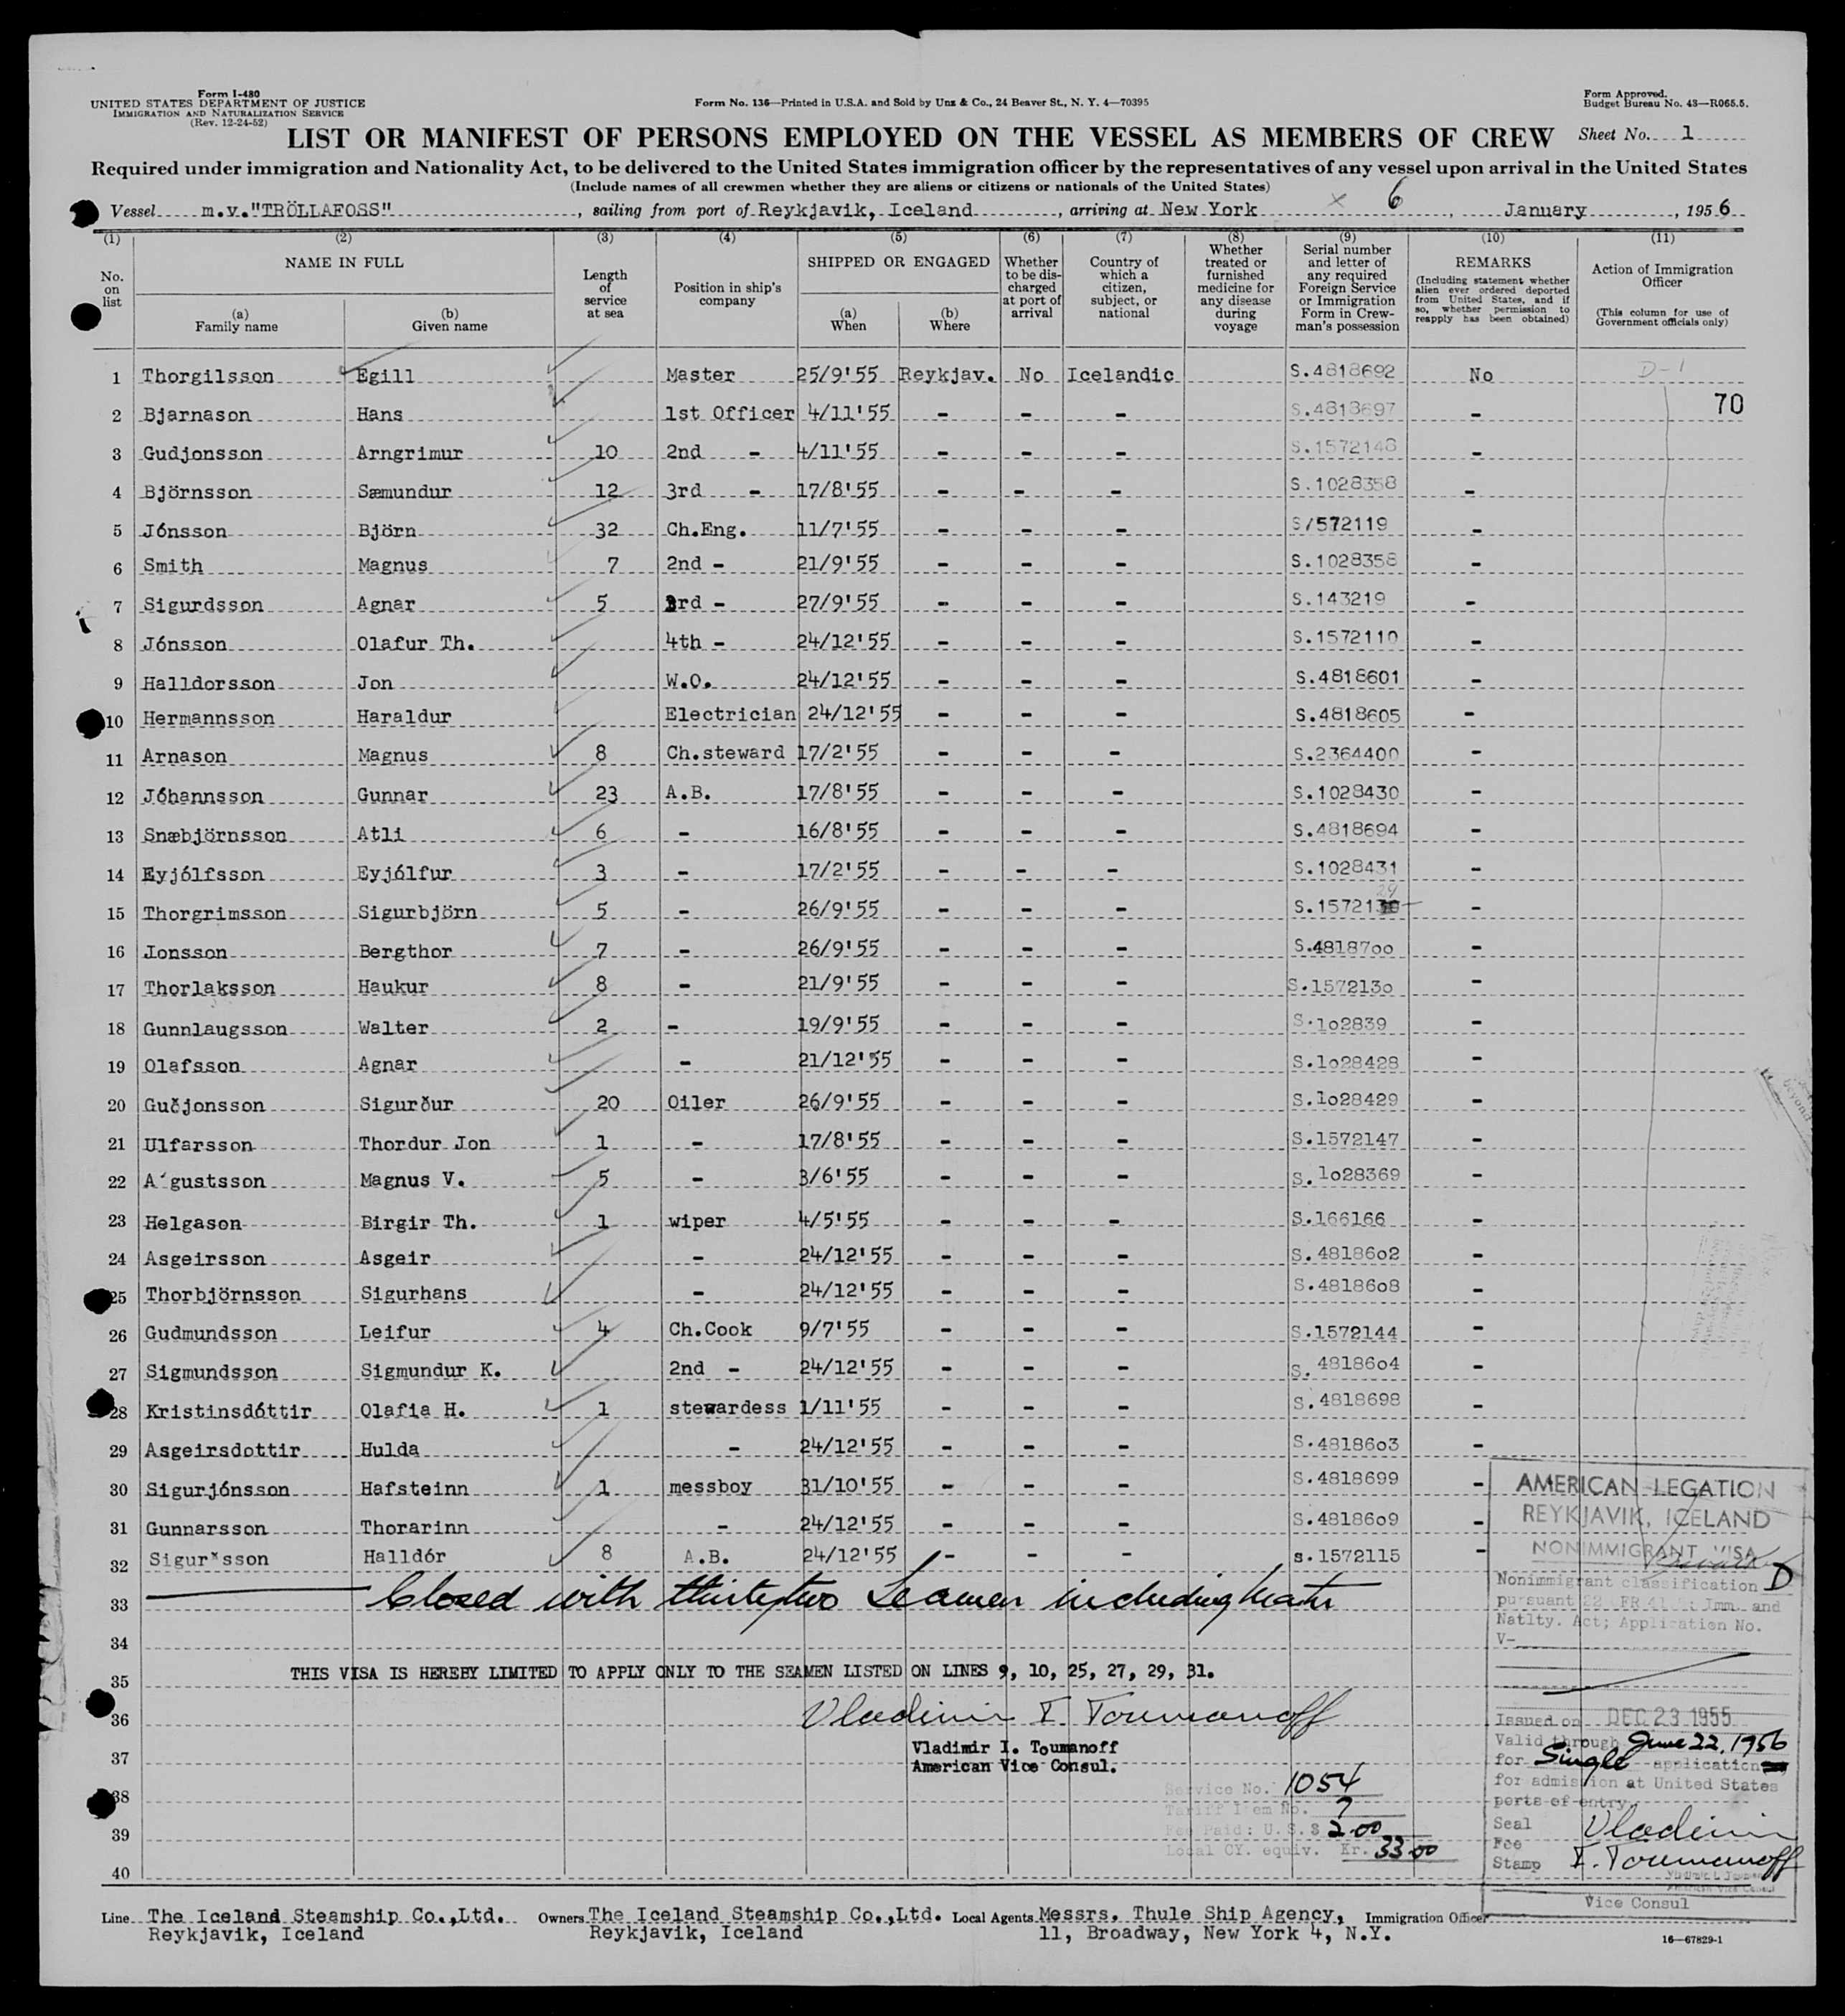 Form I-480
UNITED STATES DEPARTMENT OF JUSTICE
IMMIGRATION AND NATURALIZATION SERVICE
(Rev. 12-24-52)
Form No. 136—Printed in U.S.A. and Sold by Unz & Co., 24 Beaver St., N. Y. 4—70395
Form Approved.
Budget Bureau No. 43—R065.5.
LIST OR MANIFEST OF PERSONS EMPLOYED ON THE VESSEL AS MEMBERS OF CREW
Sheet No. 1
Required under immigration and Nationality Act, to be delivered to the United States immigration officer by the representatives of any vessel upon arrival in the United States
(Include names of all crewmen whether they are aliens or citizens or nationals of the United States)
Vessel m.v."TRÖLLAFOSS", sailing from port of Reykjavik, Iceland, arriving at New York x 6, January, 1956
(1) (2) (3) (4) (5) (6) (7) (8) (9) (10) (11)
No. on list
NAME IN FULL
(a) Family name
(b) Given name
Length of service at sea
Position in ship's company
SHIPPED OR ENGAGED
(a) When
(b) Where
Whether to be discharged at port of arrival
Country of which a citizen, subject, or national
Whether treated or furnished medicine for any disease during voyage
Serial number and letter of any required Foreign Service or Immigration Form in Crewman's possession
REMARKS
(Including statement whether alien ever ordered deported from United States, and if so, whether permission to reapply has been obtained)
Action of Immigration Officer
(This column for use of Government officials only)
1 Thorgilsson Egill Master 25/9'55 Reykjav. No Icelandic S.4818692 No D-1
70
2 Bjarnason Hans 1st Officer 4/11'55 - - - S.4818697 -
3 Gudjonsson Arngrimur 10 2nd - 4/11'55 - - - S.1572148 -
4 Björnsson Sæmundur 12 3rd - 17/8'55 - - - S.1028358 -
5 Jónsson Björn 32 Ch.Eng. 11/7'55 - - - S/572119 -
6 Smith Magnus 7 2nd - 21/9'55 - - - S.1028358 -
7 Sigurdsson Agnar 5 3rd - 27/9'55 - - - S.143219 -
8 Jónsson Olafur Th. 4th - 24/12'55 - - - S.1572110 -
9 Halldorsson Jon W.O. 24/12'55 - - - S.4818601 -
10 Hermannsson Haraldur Electrician 24/12'55 - - - S.4818605 -
11 Arnason Magnus 8 Ch.steward 17/2'55 - - - S.2364400 -
12 Jóhannsson Gunnar 23 A.B. 17/8'55 - - - S.1028430 -
13 Snæbjörnsson Atli 6 - 16/8'55 - - - S.4818694 -
14 Eyjólfsson Eyjólfur 3 - 17/2'55 - - - S.1028431 -
15 Thorgrimsson Sigurbjörn 5 - 26/9'55 - - - S.15721 29 -
16 Jonsson Bergthor 7 - 26/9'55 - - - S.4818700 -
17 Thorlaksson Haukur 8 - 21/9'55 - - - S.1572130 -
18 Gunnlaugsson Walter 2 - 19/9'55 - - - S.102839 -
19 Olafsson Agnar - 21/12'55 - - - S.1028428 -
20 Guðjonsson Sigurður 20 Oiler 26/9'55 - - - S.1028429 -
21 Ulfarsson Thordur Jon 1 - 17/8'55 - - - S.1572147 -
22 A´gustsson Magnus V. 5 - 3/6'55 - - - S.1028369 -
23 Helgason Birgir Th. 1 wiper 4/5'55 - - - S.166166 -
24 Asgeirsson Asgeir - 24/12'55 - - - S.4818602 -
25 Thorbjörnsson Sigurhans - 24/12'55 - - - S.4818608 -
26 Gudmundsson Leifur 4 Ch.Cook 9/7'55 - - - S.1572144 -
27 Sigmundsson Sigmundur K. 2nd - 24/12'55 - - - S.4818604 -
28 Kristinsdóttir Olafia H. 1 stewardess 1/11'55 - - - S.4818698 -
29 Asgeirsdottir Hulda - 24/12'55 - - - S.4818603 -
30 Sigurjónsson Hafsteinn 1 messboy 31/10'55 - - - S.4818699 -
31 Gunnarsson Thorarinn - 24/12'55 - - - S.4818609 -
32 Sigur*sson Halldór 8 A.B. 24/12'55 - - - s.1572115 -
33 Closed with thirtytwo Seamen including Master
34
35 THIS VISA IS HEREBY LIMITED TO APPLY ONLY TO THE SEAMEN LISTED ON LINES 9, 10, 25, 27, 29, 31.
36 Vladimir I. Toumanoff
37 Vladimir I. Toumanoff
American Vice Consul.
38
39
40
Service No. 1054
Tariff Item No. 7
Fee Paid: U.S.$ 2.00
Local CY. equiv. Kr. 33.00
AMERICAN LEGATION
REYKJAVIK, ICELAND
NONIMMIGRANT VISA
Nonimmigrant classification D
pursuant 22 CFR 41 Imm. and
Natlty. Act; Application No.
V-
Issued on DEC 23 1955
Valid through June 22, 1956
for Single application
for admission at United States
ports of entry.
Seal
Fee
Stamp
Vladimir
I. Toumanoff
Vice Consul
Line The Iceland Steamship Co.,Ltd. Owners The Iceland Steamship Co.,Ltd. Local Agents Messrs. Thule Ship Agency, Immigration Officer
Reykjavik, Iceland Reykjavik, Iceland 11, Broadway, New York 4, N.Y.
16—67829-1